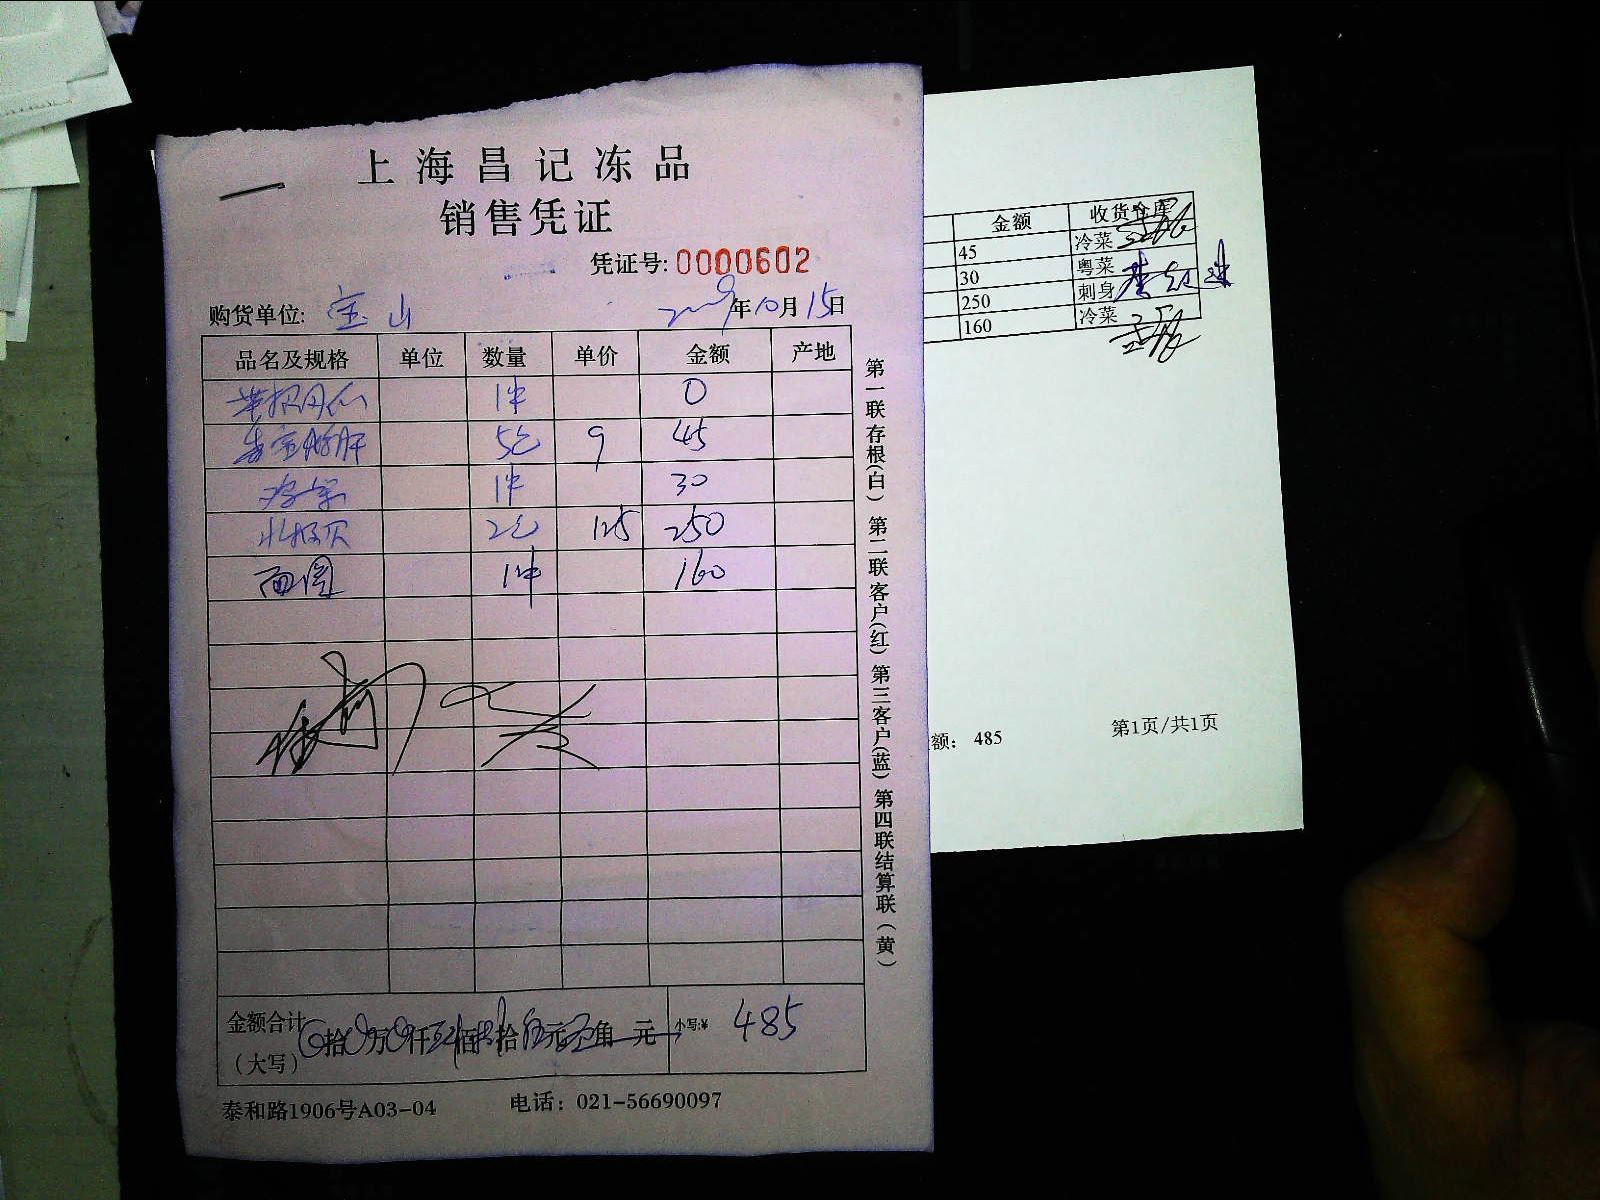 上海昌记冻品
销售凭证
凭证号: 0000602
购货单位: 宝山 年10月15日
品名及规格 单位 数量 单价 金额 产地
1件 0
5包 9 45
1件 30
北极贝 2包 125 250
面圆 1件 160
金额合计 拾 万 仟 佰 拾 伍元 角 元 小写:¥ 485
(大写)
泰和路1906号A03-04 电话: 021-56690097
第一联存根(白) 第二联客户(红) 第三客户(蓝) 第四联结算联(黄)
金额 收货仓库
45 冷菜
30 粤菜
250 刺身
160 冷菜
额: 485 第1页/共1页